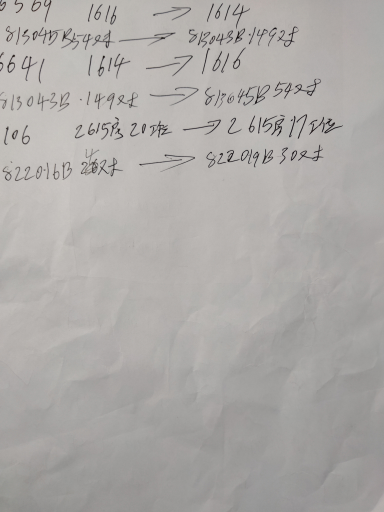 6569 1616 → 1614
813045B54对 → 813043B·149对
6641 1614 → 1616
813043B·149对 → 813045B54对
106 2615房20班 → 2615房17班
822016B 对 → 822019B30对